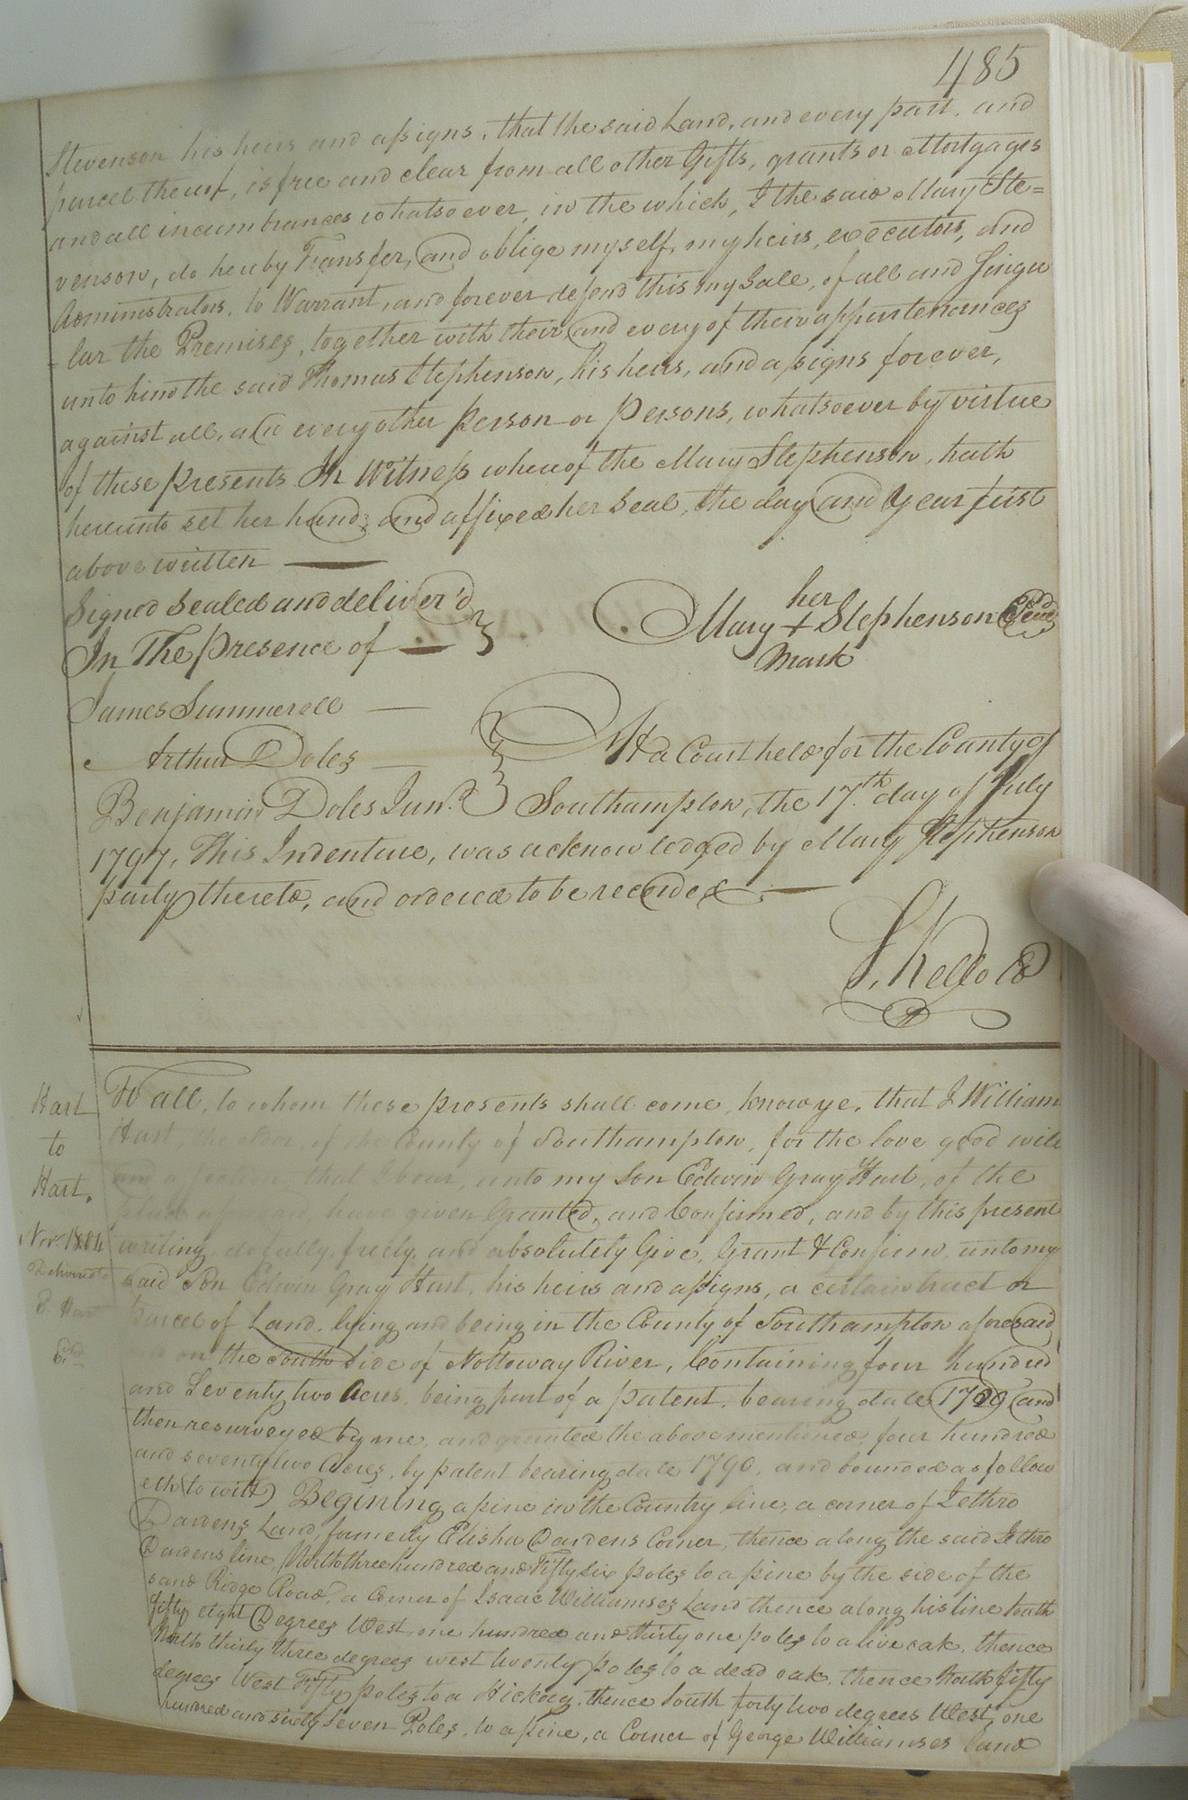 485
Stevenson his heirs and assigns, that the said Land, and every part, and
parcel thereof, is free and clear from all other Gifts, grants or Mortgages
and all incumbrances whatsoever, in the which, I the said Mary Ste=
venson, do hereby Transfer, and oblige myself, my heirs, executors, and
Administrators, to Warrant, and forever defend this my Sale, of all and Singu
- lar the Premises, together with their, and every of their appurtenances
unto him the said Thomas Stephenson, his heirs, and assigns forever,
against all, and every other Person or Persons, whatsoever by virtue
of these presents In Witness whereof the Mary Stephenson, hath
hereunto set her hand, and affixed her Seal, the day and Year first
above written
Signed Sealed and deliver'd
In The presence of
her
Mary + Stephenson Seal
mark
James Summerell
Arthur Doles
Benjamin Doles Junr.
At a Court held for the County of
Southampton, the 17th. day of July
1797, This Indenture, was acknowledged by Mary Stephenson
party thereto, and ordered to be recorded
S. Kello
Hart
to
Hart.
Novr. 1804
Delivered to
E. Hart
To all, to whom these presents shall come, know ye, that I William
Hart, the elder of the County of Southampton, for the love good will
and affection that I bear, unto my Son Edwin Gray Hart, of the
place aforesaid have given Granted, and Confirmed, and by this present
writing, do fully, freely, and absolutely Give, Grant & Confirm, unto my
said Son Edwin Gray Hart, his heirs and assigns, a certain tract or
Parcel of Land, lying and being in the County of Southampton aforesaid
on the South Side of Nottoway River, Containing four hundred
and Seventy two Acres, being part of a patent, bearing date 1720 and
then resurveyed by me, and granted the above mentioned, four hundred
and seventy two Acres, by patent bearing date 1790, and bounded as follow
eth (to witt) Begining a pine in the Country line, a corner of Jethro
Dardens Land, formerly Elisha Dardens Corner, thence along the said Jethro
Dardens line, North three hundred and Fifty Six poles to a pine by the side of the
sand Ridge Road, a Corner of Isaac Williamses Land thence along his line South
fifty eight Degrees West, one hundred and thirty one poles to a live oak, thence
North thirty three degrees west twenty poles to a dead oak, thence North fifty
degrees West Fifty poles to a Hickory, thence South forty two degrees West, one
hundred and sixty Seven Poles, to a pine, a Corner of George Williamses Land